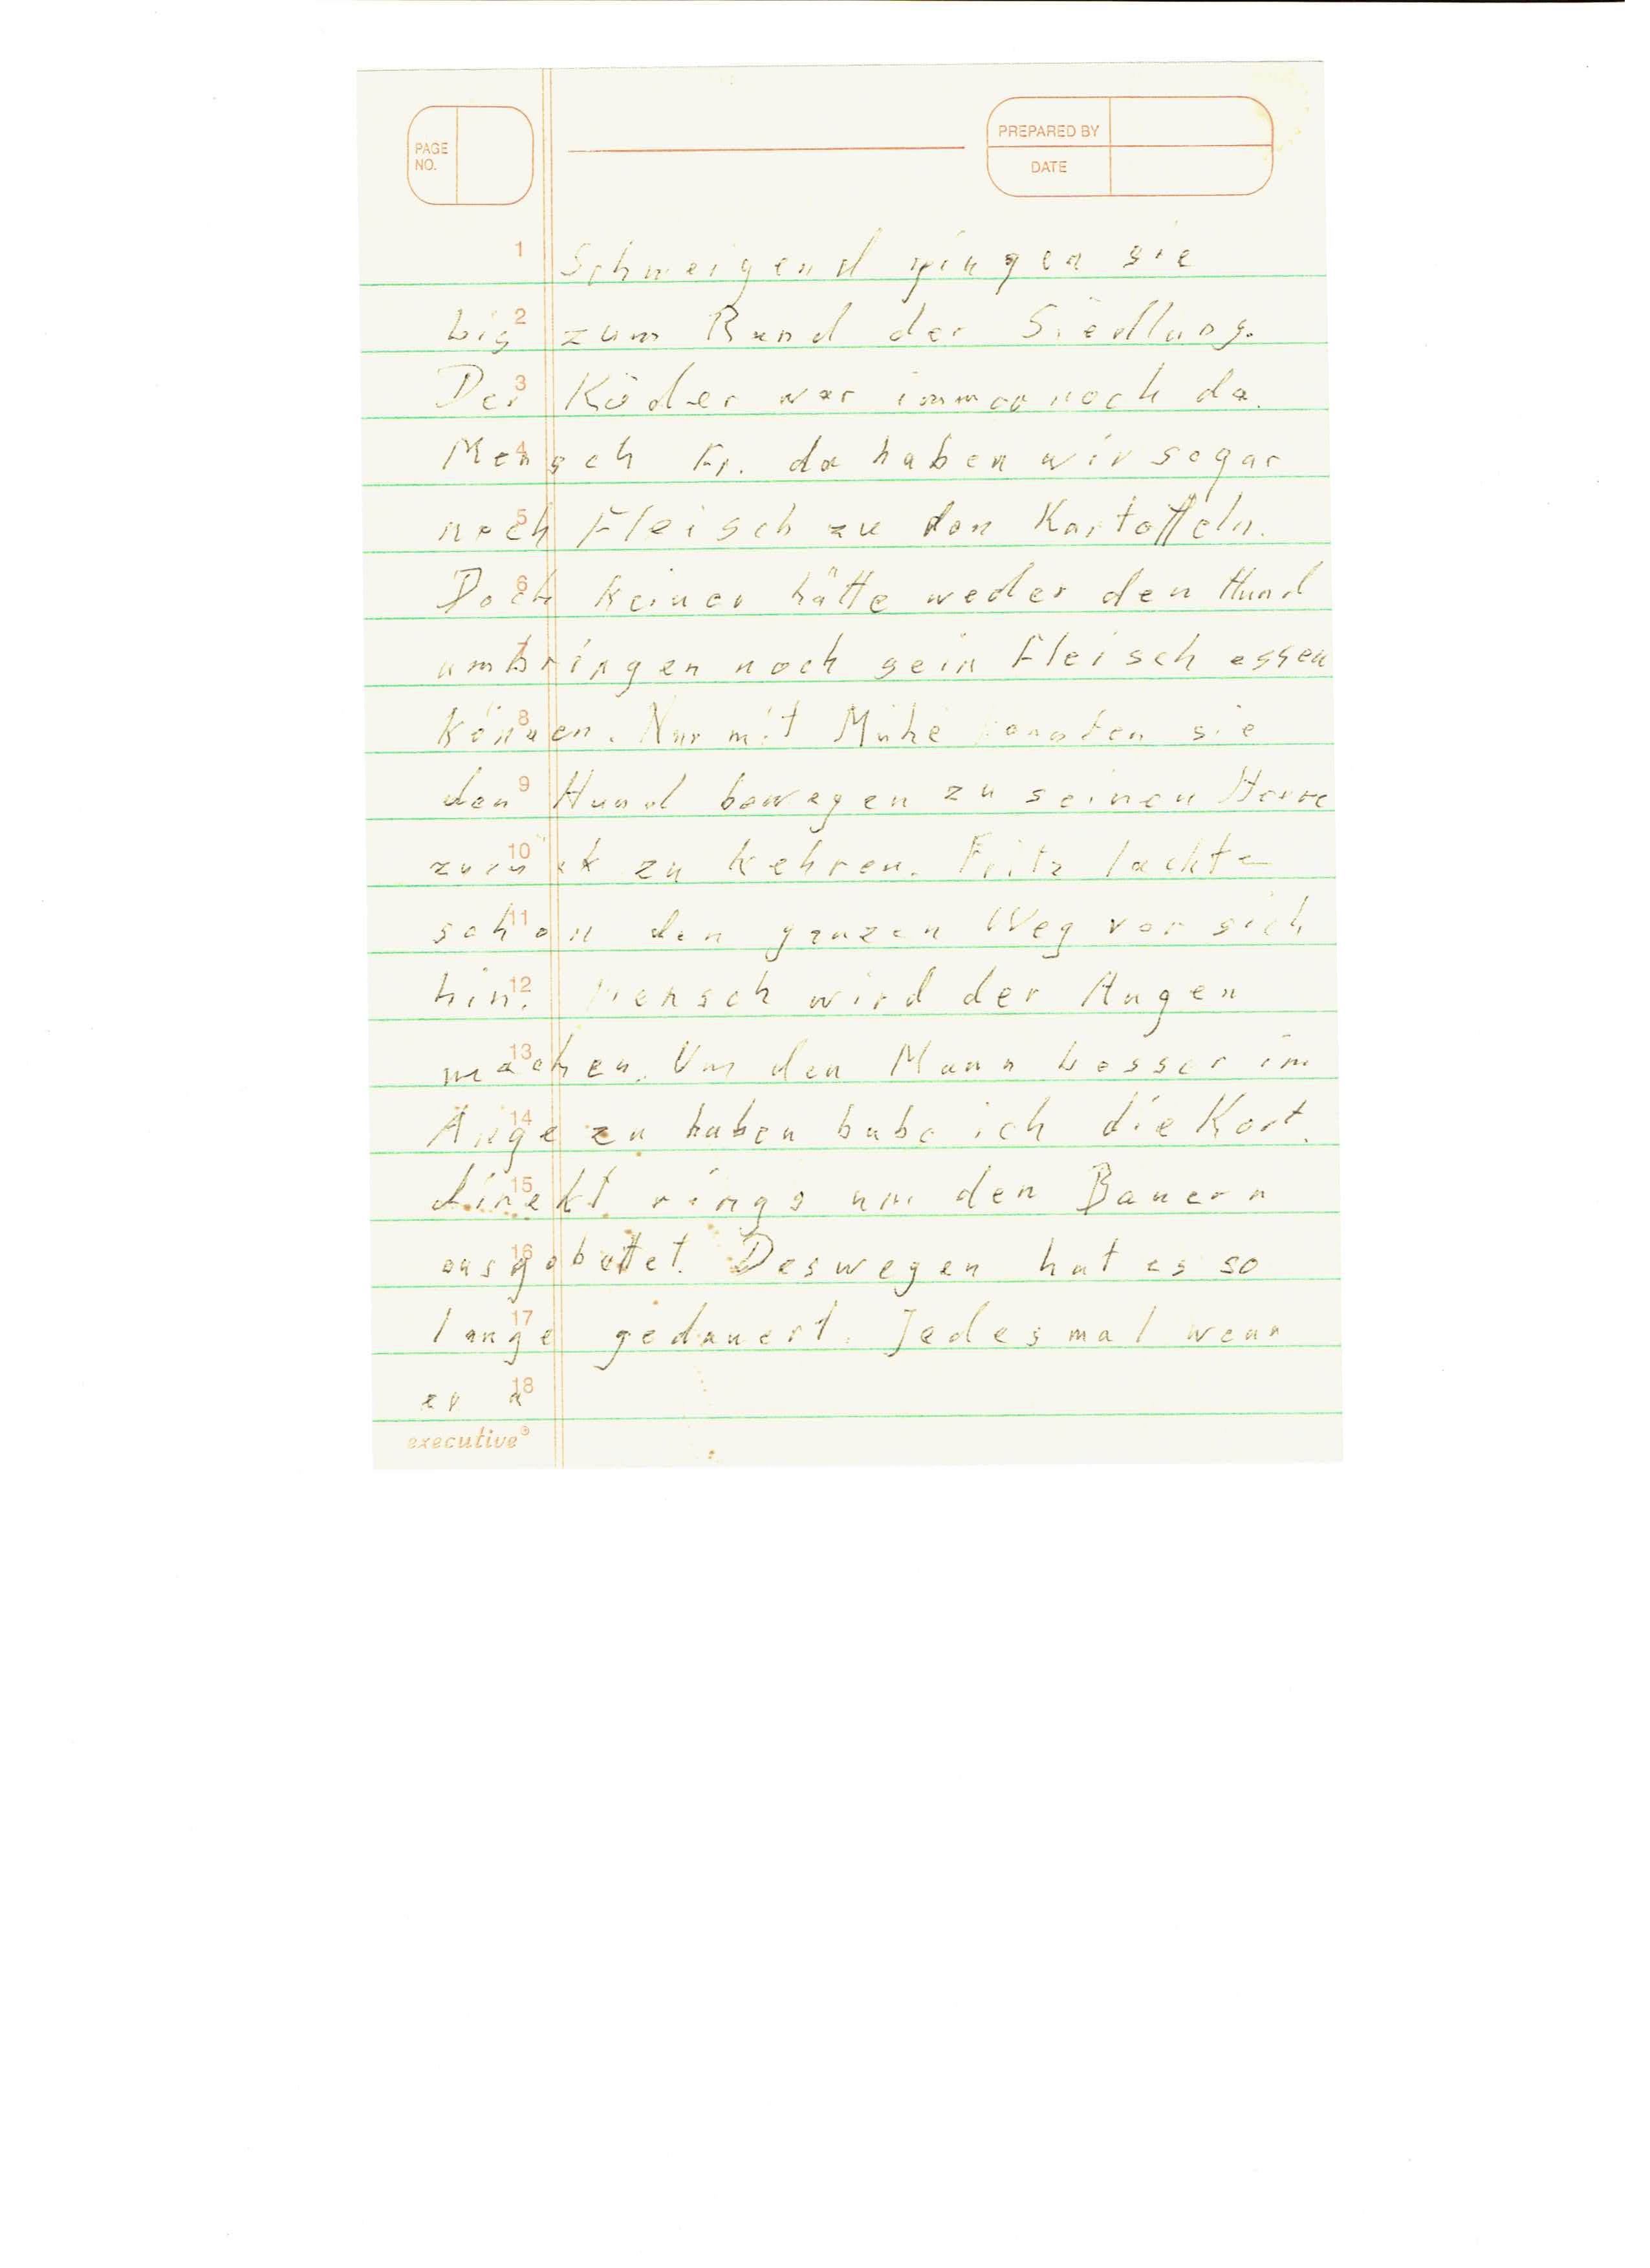 PAGE NO.
PREPARED BY
DATE
1 Schweigend gingen sie
2 bis zum Rand der Siedlung.
3 Der Köder war immer noch da.
4 Mensch Fr. da haben wir sogar
5 noch Fleisch zu den Kartoffeln.
6 Doch keiner hätte weder den Hund
7 umbringen noch sein Fleisch essen
8 können. Nur mit Mühe konnten sie
9 den Hund bewegen zu seinen Herrn
10 zurück zu kehren. Fritz lachte
11 schon den ganzen Weg vor sich
12 hin. Mensch wird der Augen
13 machen. Um den Mann besser im
14 Auge zu haben habe ich die Kart.
15 direkt rings um den Bauern
16 ausgebuttet. Deswegen hat es so
17 lange gedauert. Jedesmal wenn
18 er a
executive®